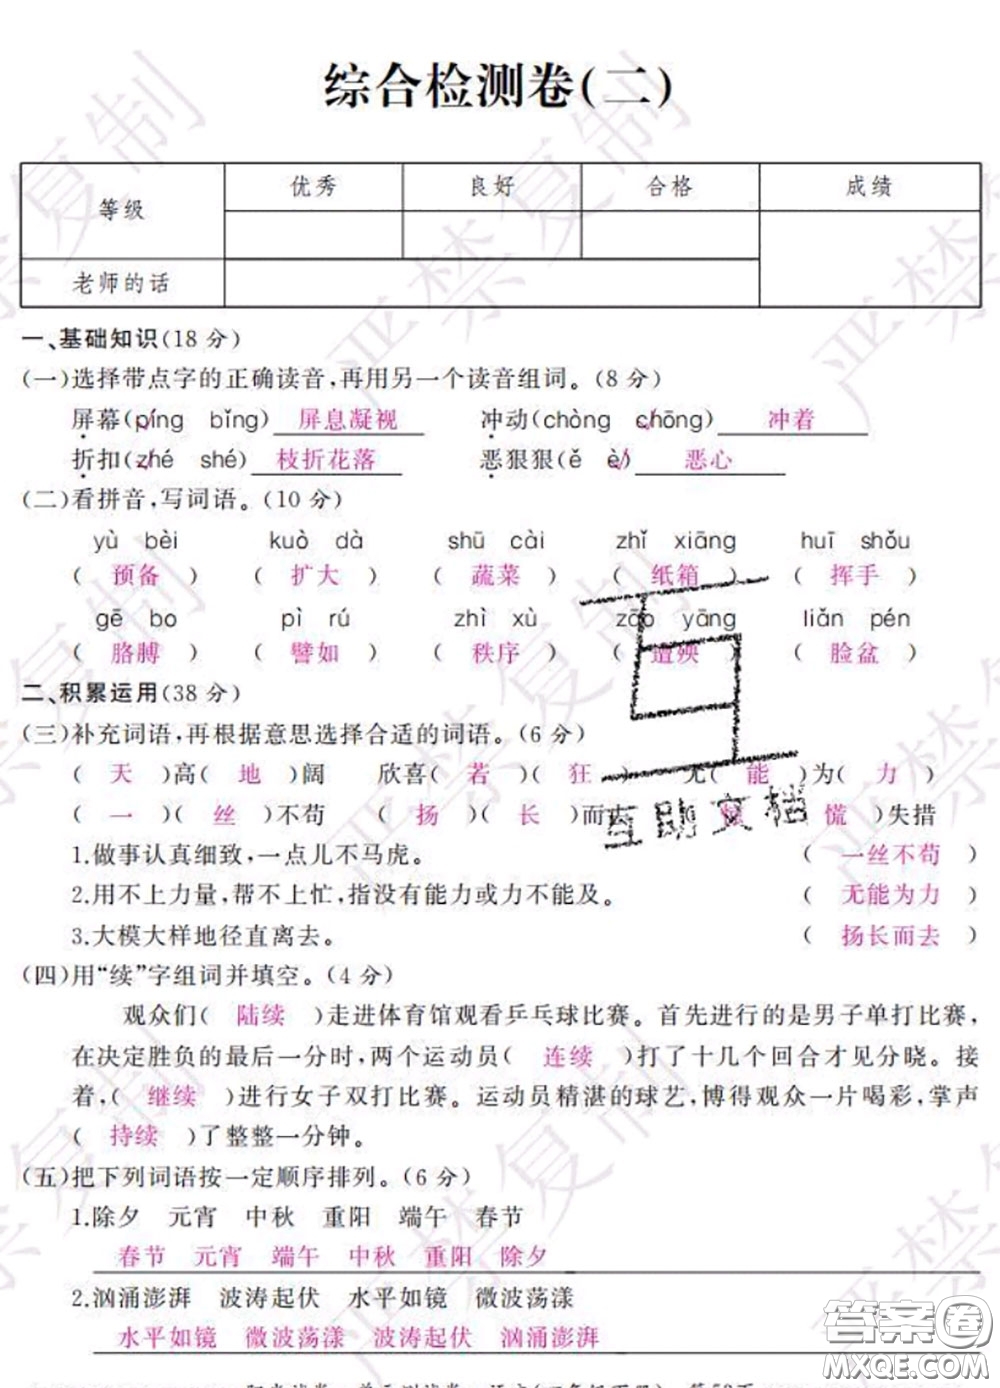 综合检测卷(二)
等级 优秀 良好 合格 成绩
老师的话
一、基础知识(18分)
(一)选择带点字的正确读音,再用另一个读音组词。(8分)
屏幕(píng bǐng) 屏息凝视 冲动(chòng chōng) 冲着
折扣(zhé shé) 枝折花落 恶狠狠(ě è) 恶心
(二)看拼音,写词语。(10分)
yù bèi kuò dà shū cài zhǐ xiāng huī shǒu
( 预备 ) ( 扩大 ) ( 蔬菜 ) ( 纸箱 ) ( 挥手 )
gē bo pì rú zhì xù zāo yāng liǎn pén
( 胳膊 ) ( 譬如 ) ( 秩序 ) ( 遭殃 ) ( 脸盆 )
二、积累运用(38分)
(三)补充词语,再根据意思选择合适的词语。(6分)
( 天 )高( 地 )阔 欣喜( 若 )( 狂 ) 无( 能 )为( 力 )
( 一 )( 丝 )不苟 ( 扬 )( 长 )而去 ( 慌 )失措
1.做事认真细致,一点儿不马虎。 ( 一丝不苟 )
2.用不上力量,帮不上忙,指没有能力或力不能及。 ( 无能为力 )
3.大模大样地径直离去。 ( 扬长而去 )
(四)用“续”字组词并填空。(4分)
观众们( 陆续 )走进体育馆观看乒乓球比赛。首先进行的是男子单打比赛,
在决定胜负的最后一分时,两个运动员( 连续 )打了十几个回合才见分晓。接
着,( 继续 )进行女子双打比赛。运动员精湛的球艺,博得观众一片喝彩,掌声
( 持续 )了整整一分钟。
(五)把下列词语按一定顺序排列。(6分)
1.除夕 元宵 中秋 重阳 端午 春节
春节 元宵 端午 中秋 重阳 除夕
2.汹涌澎湃 波涛起伏 水平如镜 微波荡漾
水平如镜 微波荡漾 波涛起伏 汹涌澎湃
互助文档
答案圈
MXQE.COM
严禁复制